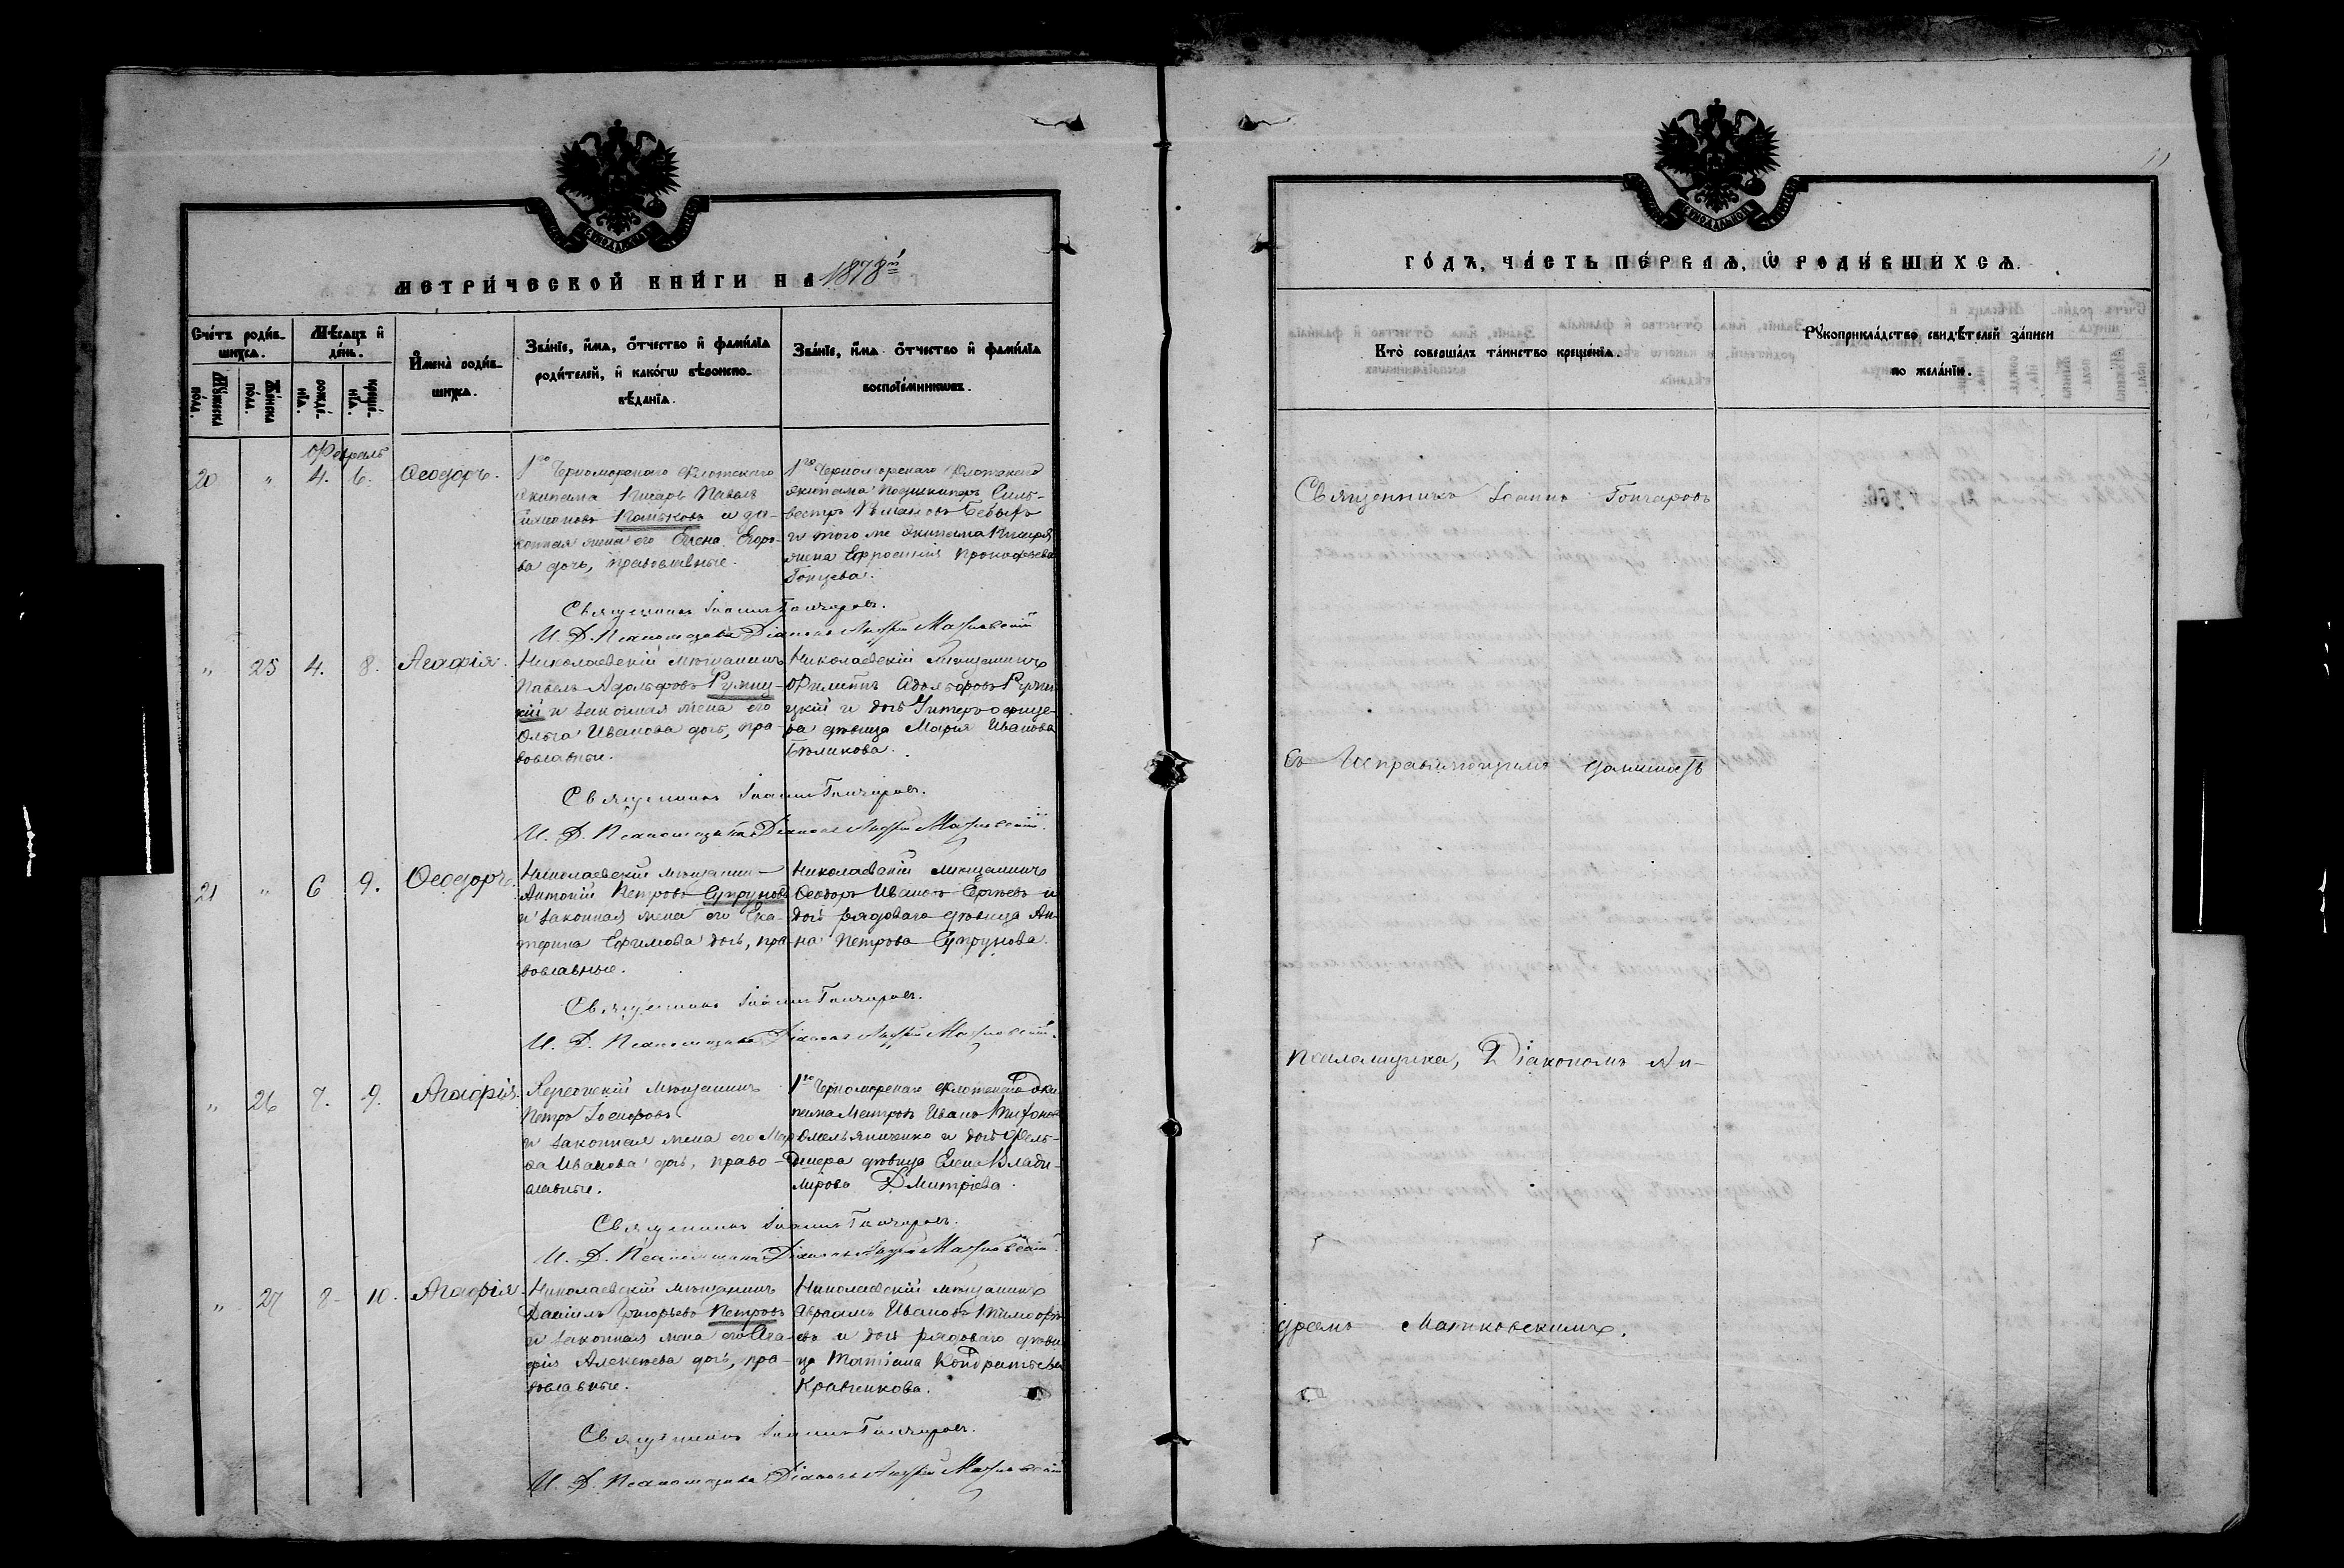 МЕТРИ́ЧЕСКОЙ КНИ́ГИ НА 1878й
Сче́тъ роди́в-
шихсѧ.
Мѣ́сѧцъ и҆
де́нь.
И҆мена̀ роди́в-
шихсѧ.
Зва́нїе, и҆́мѧ, ѻ҆́тчество и҆ фами́лїѧ
роди́телей, и҆ како́гѡ вѣроиспо-
вѣ́данїѧ.
Зва́нїе, и҆́мѧ ѻ҆́тчество и҆ фами́лїѧ
воспрїе́мниковъ.
Мꙋ́жеска
по́ла.
Же́нска
по́ла.
рожде́-
нїѧ.
креще́-
нїѧ.
Февраль
20 " 4. 6. Ѳеодоръ.
1го Черноморскаго Флотскаго
экипажа Писарь Павелъ
и за-
конная жена его Елена Егоро-
ва дочь, православные.
1го Черноморскаго Флотскаго
экипажа Подшкиперъ Силь-
вестръ
и того же экипажа Писаря
жена Ефросинія Прокофьева
Священникъ Іоаннъ Гончаровъ.
И. Д. Псаломщика Діаконъ Андрей Матковскій
" 25 4. 8. Агафія.
Николаевскій мѣщанинъ
Павелъ Адольфовъ Ружиц-
кій и законная жена его
Ольга Иванова дочь, пра-
вославные.
Николаевскій мѣщанинъ
Филиппъ Адольфовъ Ружи-
цкій и дочь Унтеръ-офице-
ра дѣвица Марія Иванова
Бѣликова.
Священникъ Іоаннъ Гончаровъ.
И. Д. Псаломщика Діаконъ Андрей Матковскій.
21 " 6 9. Ѳеодоръ.
Николаевскій мѣщанин-
Антоній Петровъ Супруновъ
и законная жена его Ека-
терина Ефимова дочь, пра-
вославные.
Николаевскій мѣщанинъ
Ѳеодоръ Ивановъ Сергѣевъ и
дочь рядоваго дѣвица Ан-
на Петрова Супрунова.
Священникъ Іоаннъ Гончаровъ.
И. Д. Псаломщика Діаконъ Андрей Матковскій.
" 26 7. 9. Агафія.
Херсонскій мѣщанинъ
Петръ
и законная жена его Мар
ѳа Иванова дочь, право-
славные.
1го Черноморскаго Флотскаго Эки
пажа Матрозъ Иванъ
Омельяниченко и дочь Фель-
дшера дѣвица Елена Влади-
мірова Дмитріева.
Священникъ Іоаннъ Гончаровъ.
И. Д. Псаломщика Діаконъ Андрей Матковскій.
" 27 8- 10. Агафія.
Николаевскій мѣщанинъ
Даніилъ Григорьевъ Петровъ
и законная жена его Ага-
фія Алексѣева дочь, пра-
вославные.
Николаевскій мѣщанинъ
Авраамъ Ивановъ Тимофѣ-
евъ и дочь рядоваго дѣви-
ца Татіана Кондратьева
Кравченкова.
Священникъ Іоаннъ Гончаровъ.
И. Д. Псаломщика Діаконъ Андрей Матковскій
11
ГО́ДЪ, ЧА́СТЬ ПЕ́РВАѦ, Ѡ҆ РОДИ́ВШИХСѦ.
Кто̀ соверша́лъ та́инство креще́нїѧ.
Рꙋкоприкла́дство свидѣ́телей за́писи
по жела́нїю.
Священникъ Іоаннъ Гончаровъ
съ Исправляющимъ должность
псаломщика, Діакономъ Ан-
дреемъ Матковскимъ.